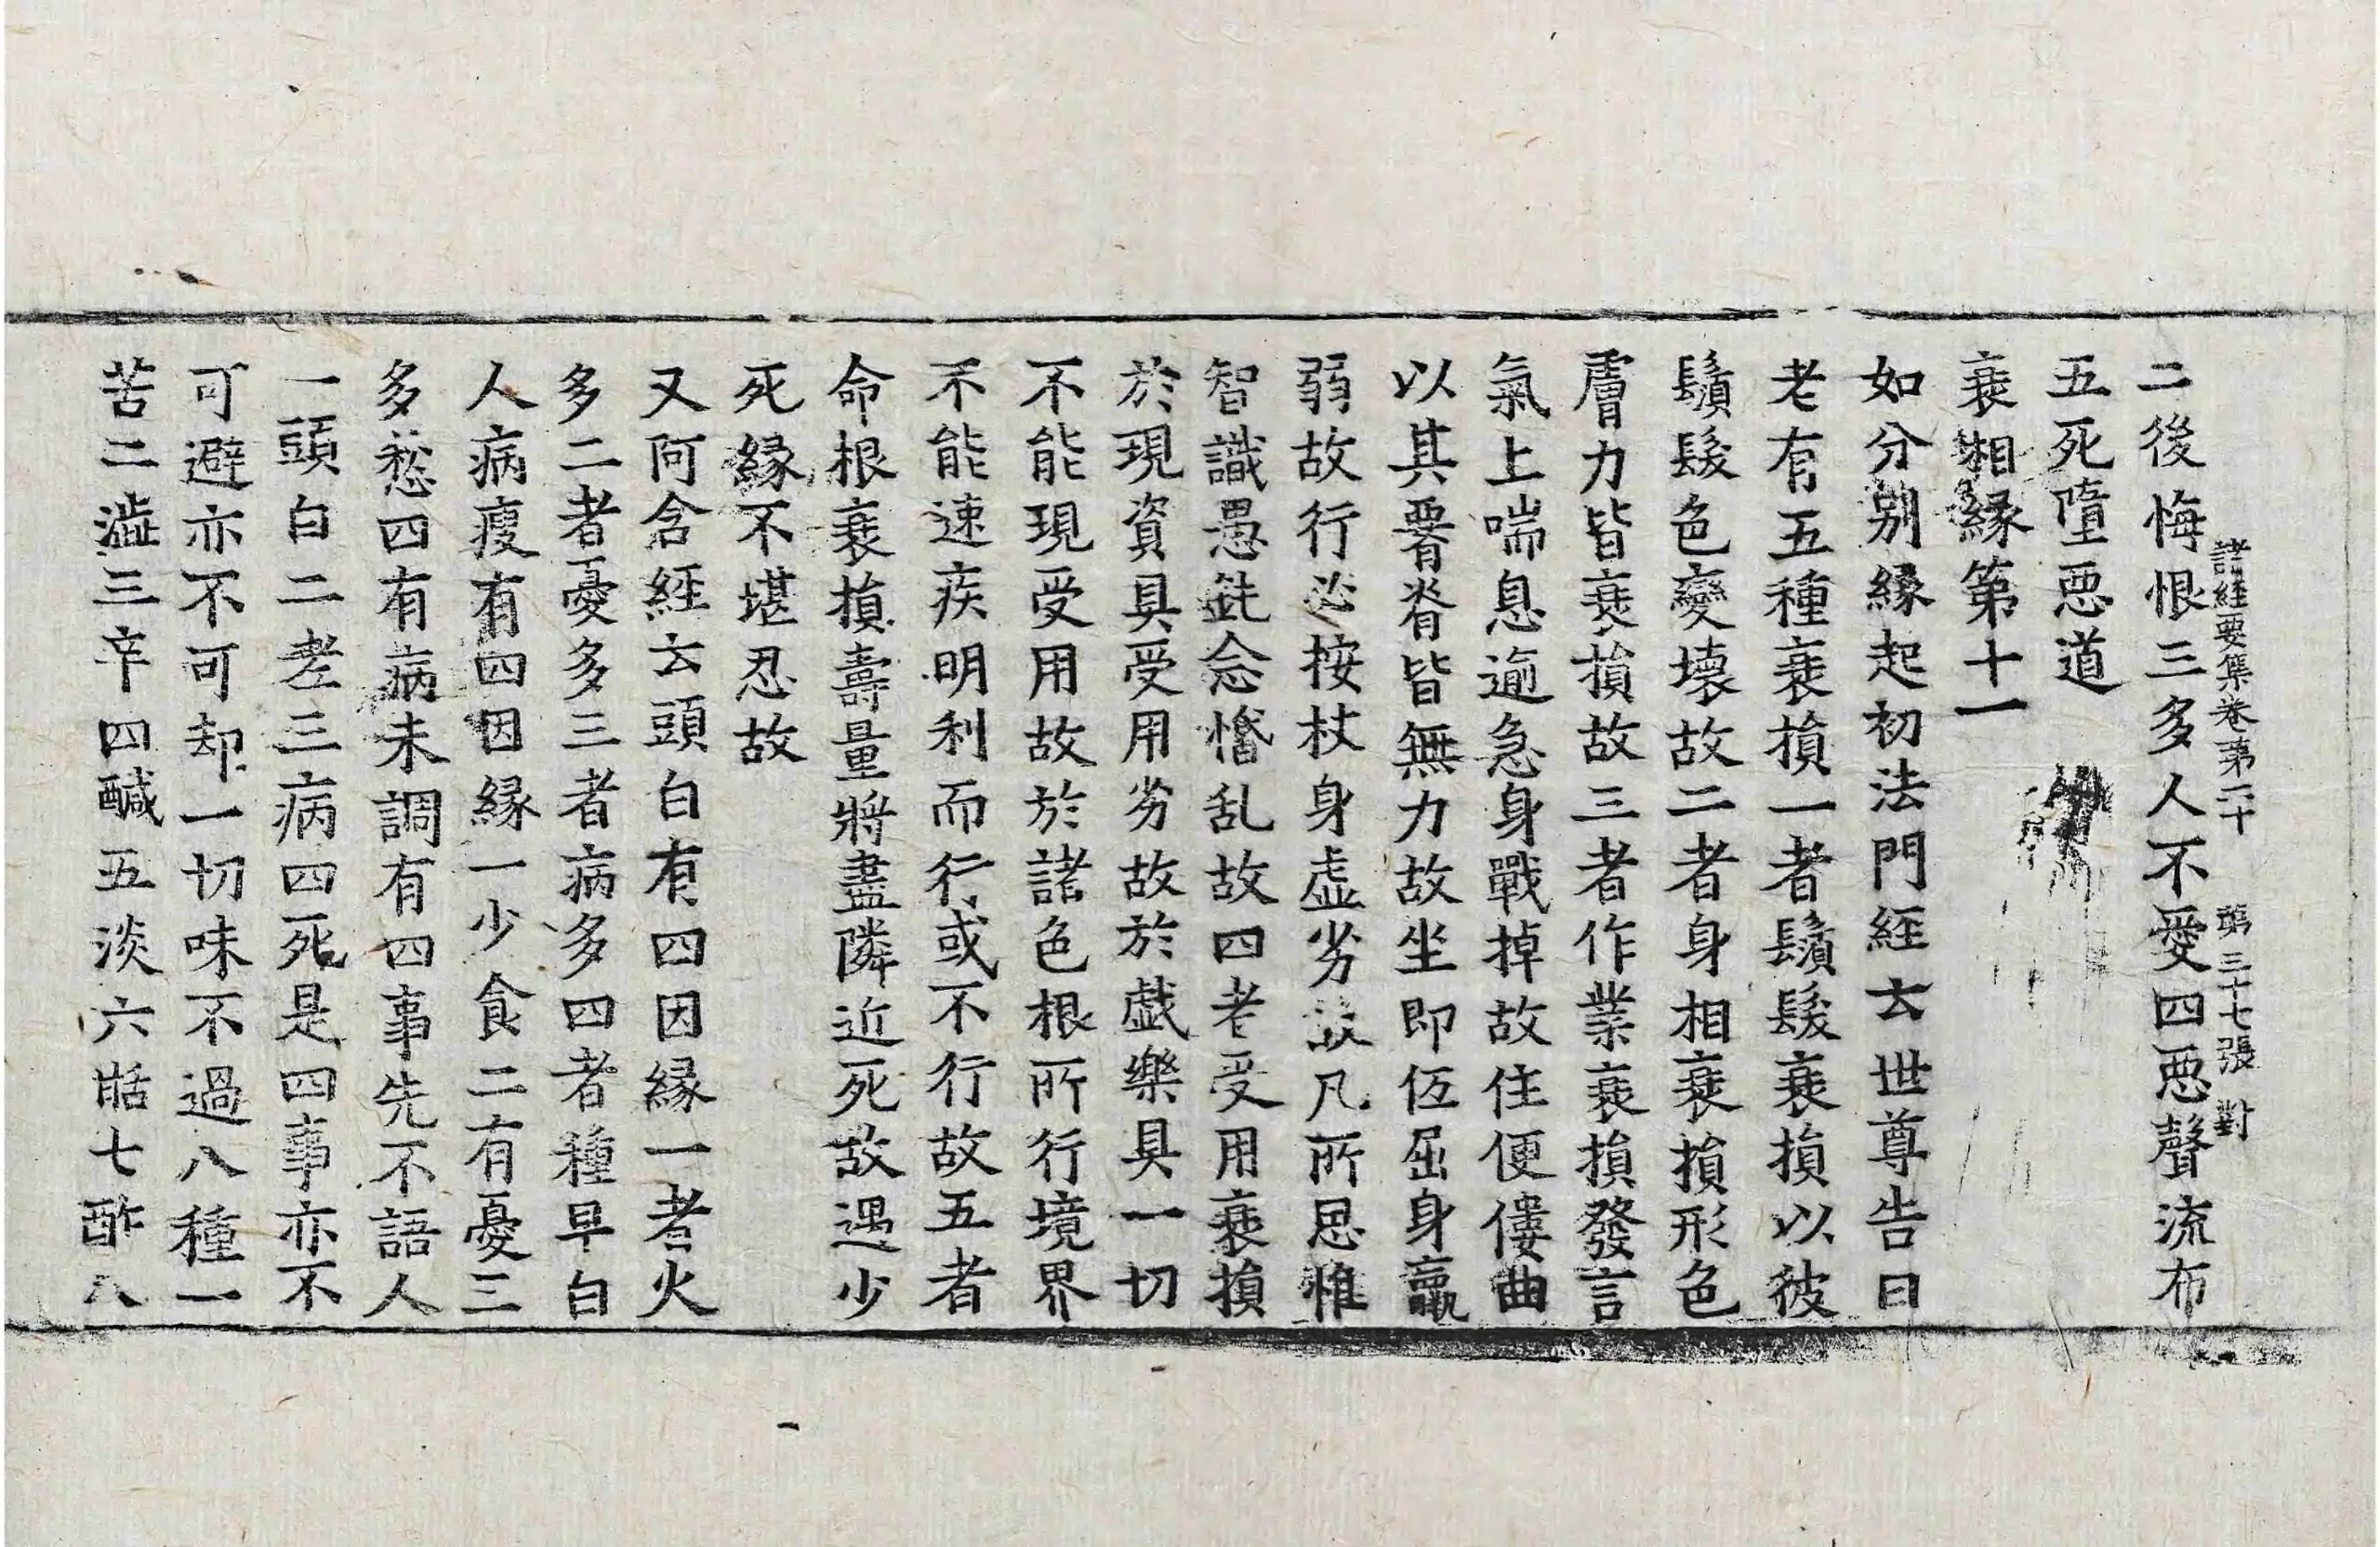 諸經要集卷第二十 第三十七張 對
二後悔恨三多人不愛四惡聲流布
五死墮惡道
衰相縁第十一
如分别縁起初法門経云世尊告曰
老有五種衰損一者鬚髮衰損以彼
鬚髮色變壞故二者身相衰損形色
膚力皆衰損故三者作業衰損發言
氣上喘息逾急身戰掉故住便僂曲
以其脊皆無力故坐即伛屈身羸
弱故行必按杖身虛劣故凡所思惟
智識愚鈍念惛乱故四老受用衰損
於現資具受用劣故於戲樂具一切
不能現受用故於諸色根所行境界
不能速疾明利而行或不行故五者
命根衰損壽量將盡隣近死故遇少
死縁不堪忍故
又阿含経云頭白有四因縁一者火
多二者憂多三者病多四者種早白
人病瘦有四因縁一少食二有憂三
多愁四有病未調有四事先不語人
一頭白二老三病四死是四事亦不
可避亦不可却一切味不過八種一
苦二澁三辛四醎五淡六甛七酢八